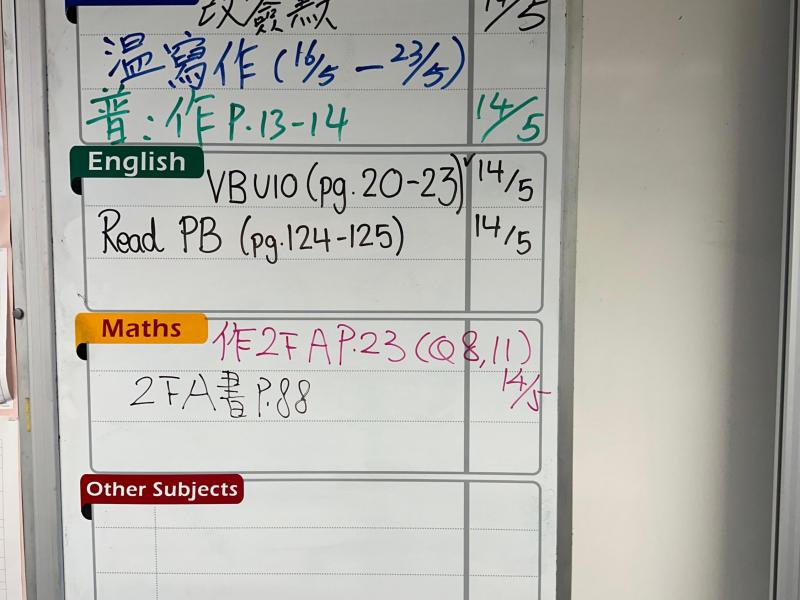 改簽默 14/5
溫寫作 (16/5 - 23/5)
普:作 P.13-14 14/5
English
VB U10 (pg. 20-23) ✓ 14/5
Read PB (pg.124-125) 14/5
Maths
作2FA P.23 (Q8,11)
14/5
2FA書 P.88
Other Subjects